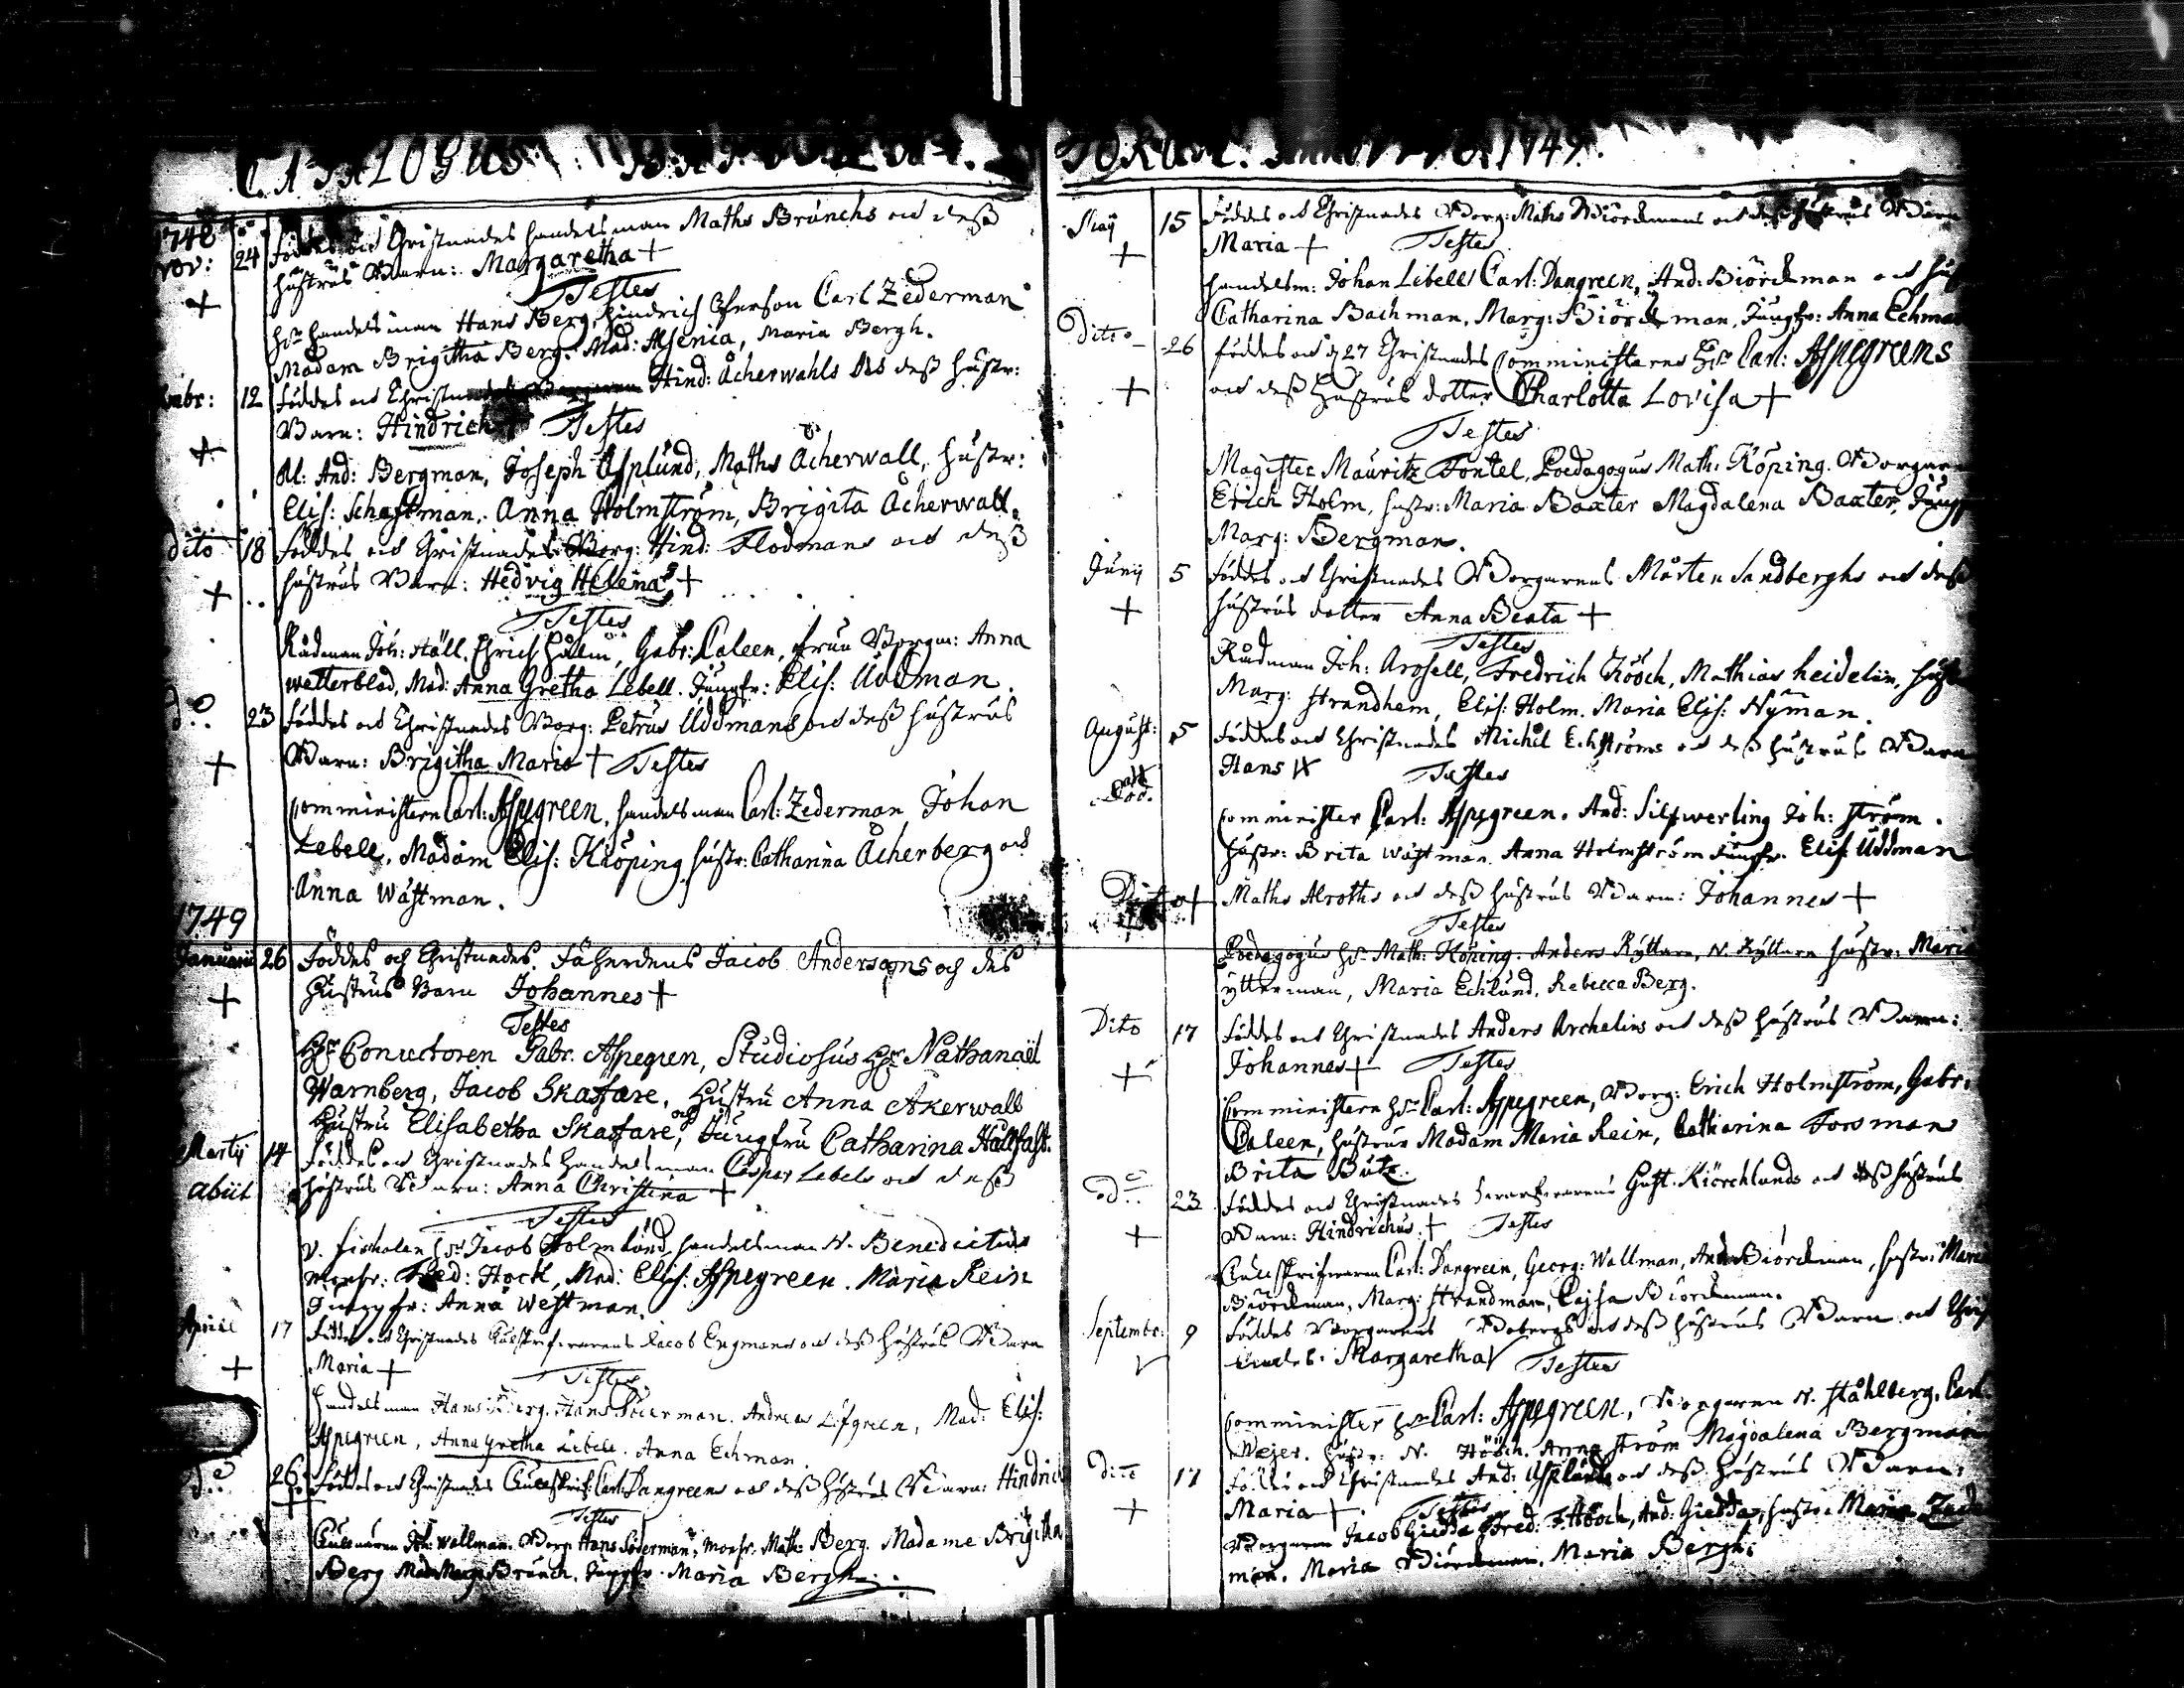 CATALOGUS BAPTIZATO
1748
Nov: 24 Föddes och Christnades handelsman Maths Brunchs och deß
hustrus Barn: Margaretha +
Testes
Hr handelsman Hans Berg, Hindrich Carl Zederman
Madam Brigitha Berg. Mad: Alsenia, Maria Bergh.
12 Föddes och Christnades Borgaren Hind: Åcherwahls och deß hustr:
Barn: Hindrich + Testes
And: Bergman, Joseph Asplund, Maths Åcherwall, hustr:
Elis: Schaftman, Anna Holmström, Brigita Åcherwall.
dito 18 Föddes och Christnades Borg: Hind: Flodmans och deß
hustrus Barn: Hedvig Helena +
Testes
Rådman Joh: Häll, Ehrich Holm, Gabr: Caleen, fruu Borgm: Anna
Wetterblad, Mad: Anna Gretha Lebell. Jungfr: Elis: Uddman.
do 23 Föddes och Christnades Borg: Petrus Uddmans och deß hustrus
Barn: Brigitha Maria + Testes
Comministern Carl: Aspegreen, handelsman Carl: Zederman Johan
Lebell, Madam Elis: Kiöping hustr: Catharina Åcherberg och
Anna Wästman.
1749
Januarii 26 Föddes och Christnades Fäherdens Jacob Andersons och des
Hustrus Barn Johannes +
Testes
Hr Conrectoren Gabr. Aspegren, Studiosus Hr Nathanaël
Warnberg, Jacob Skaffare, Hustru Anna Åkerwall
Hustru Elisabetha Skaffare, och Jungfru Catharina Hällfast.
Martij 14 Föddes och Christnades handelsman Casper Lebels och deß
abiit hustrus Barn: Anna Christina +
Testes
V. Fischalen Hr Jacob Holmlund, handelsman N. Benedictius
Monsr: Fred: Hock, Mad: Elis: Aspegreen. Maria Rein
Jungfr: Anna Westman.
April 17 Föddes och Christnades Jacob Engmans och deß hustrus Barn
+ Maria +
Testes
handelsman Hans Berg. Hans Söderman. Andreas Löfgreen, Mad: Elis:
Aspegreen, Anna Gretha Lebell. Anna Echman.
do 26 Föddes och Christnades Carl: Dangreens och deß hustrus Barn: Hindric
Testes
Joh: Wallman. Borg: Hans Söderman, Monsr. Math: Berg. Madame Brigitha
Berg Mad: Marg: Brunch. Jungfr. Maria Bergh.
TORUM. Anno 1749.
Maij 15 Föddes och Christnades Borg: Maths Biörckmans och deß hustrus Barn
+ Maria + Testes
handelsm: Johan Libell Carl: Dangreen, And: Biörckman och hus
Catharina Bachman, Marg: Biörckman, Jungfr: Anna Echman
Dito 26 föddes och d 27 Christnades Comministerns Hr Carl: Aspegreens
+ och deß hustrus dotter Charlotta Lovisa +
Testes
Magister Mauritz Fontel, Poedagogus Math: Köping. Borgar
Erich Holm, hustr: Maria Baxter Magdalena Baxter, Jungf
Marg: Bergman.
Junij 5 Föddes och Christnades Borgarens Mårten Sandberghs och deß
+ hustrus dotter Anna Beata +
Testes
Rådman Joh: Arosell, Fredrich Hööch, Mathias Heidelin, hust
Marg: Strandhem, Elis: Holm. Maria Elis: Nÿman.
August: 5 Föddes och Christnades Michel Echströms och deß hustrus Barn
Hans + Testes
Comminister Carl: Aspegreen. And: Silfwerling Joh: Ström.
hustr: Brita Wästman. Anna Holmström Jungfr. Elis: Uddman
Dito Maths Alroths och deß hustrus Barn: Johannes +
Testes
Poedagogus Hr Math: Köping. Anders Rÿttare, N. Rÿttare hustr: Maria
ÿtterman, Maria Echlund, Rebecca Berg.
Dito 17 Föddes och Christnades Anders Archelins och deß hustrus Barn:
+ Johannes + Testes
Comministern Hr Carl: Aspegreen, Borg: Erich Holmström, Gabr:
Caleen, hustrur Madam Maria Rein, Catharina Forsman
Brita Butz.
do 23 Föddes och Christnades Gust. Kiörcklunds och deß hustrus
+ Barn: Hindrichus + Testes
Carl: Dangreen, Georg: Wallman, And: Biörckman, hustr: Maria
Biörckman, Marg: Strandman, Cajsa Biörckman.
Septembr: 9 Föddes Borgarens Mobergs och deß hustrus Barn och Chris
nades. Margaretha Testes
Comminister Hr Carl: Aspegreen, Borgaren N. Ståhlberg, Carl
Mejer. hustr: N. Hööch. Anna Ström Magdalena Bergman
Dito 17 Föddes och Christnades And: Asplunds och deß hustrus Barn:
+ Maria + Testes
Borgaren Jacob Giedda Fred: Hööch, And: Giedda, hustr: Maria
man. Maria Biörckman. Maria Bergh.